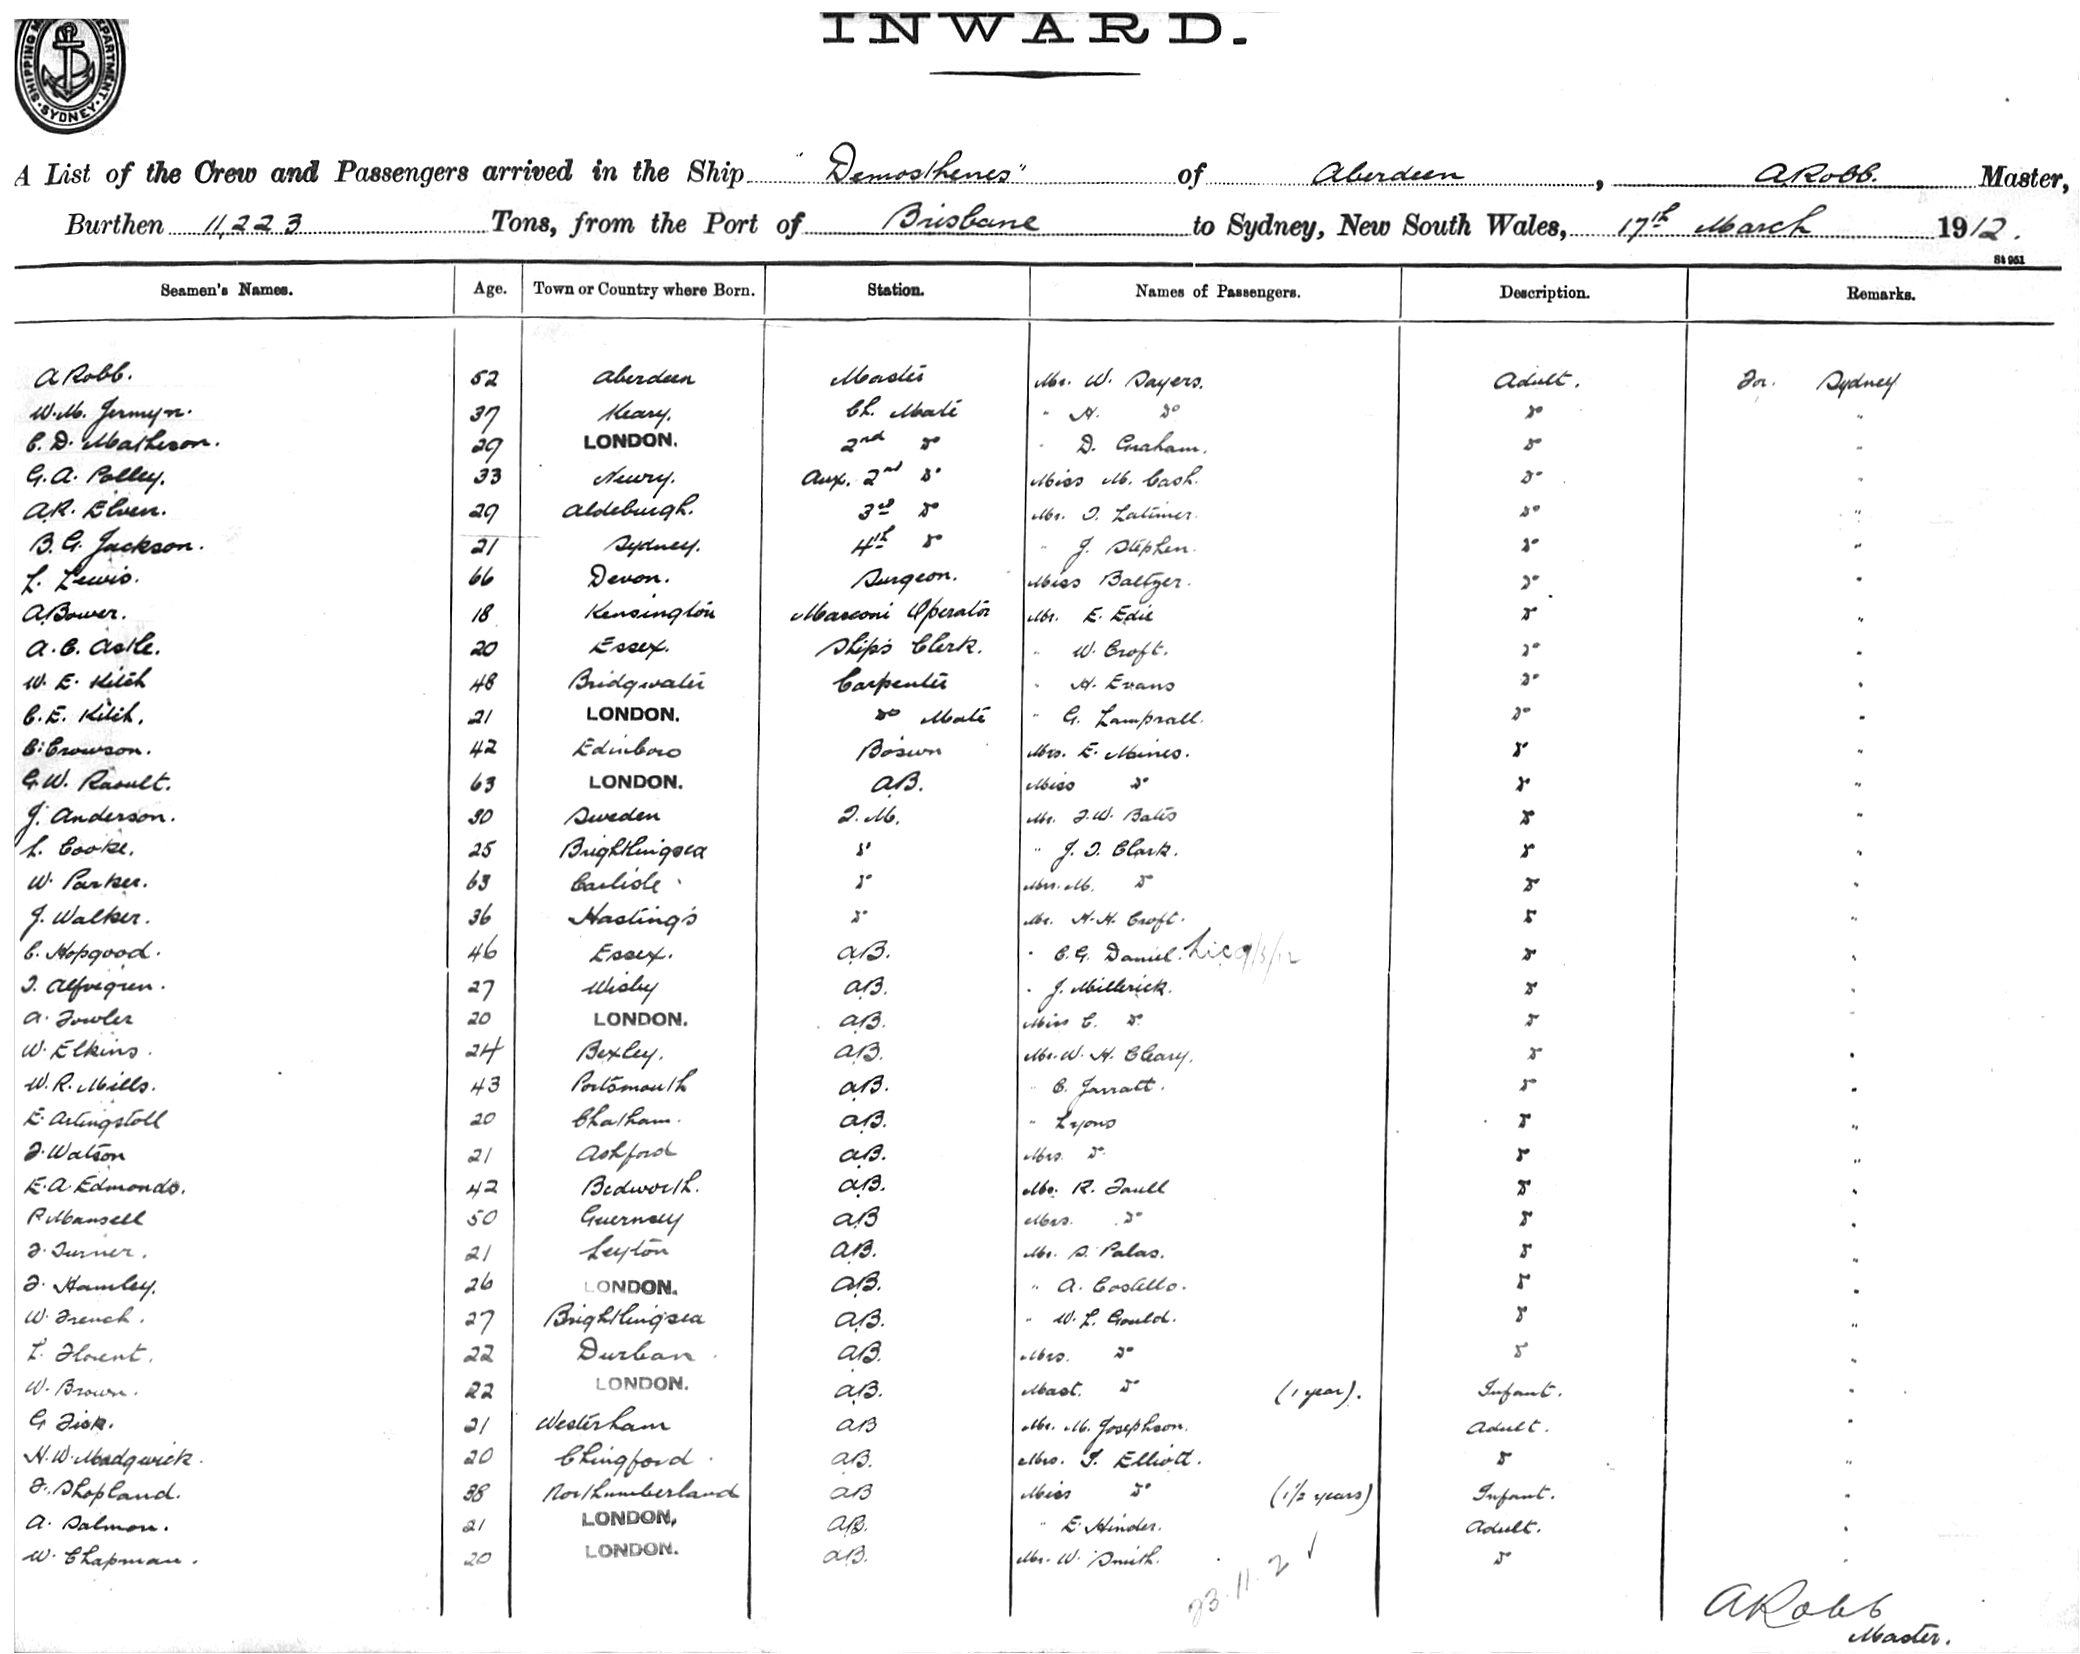 INWARD.
SHIPPING DEPARTMENT SYDNEY
A List of the Crew and Passengers arrived in the Ship "Demosthenes" of Aberdeen, A Robb. Master,
Burthen 11,223 Tons, from the Port of Brisbane to Sydney, New South Wales, 17th March 1912.
St 961
Seamen's Names. Age. Town or Country where Born. Station. Names of Passengers. Description. Remarks.
A Robb. 52 Aberdeen Master Mr. W. Sayers. Adult. For Sydney
W. M. Jermyn. 37 Keary. Ch. Mate " H. Do Do "
C. D. Matheson. 29 LONDON. 2nd Do " D. Graham. Do "
G. A. Polley. 33 Newry. Aux. 2nd Do Miss M. Cash. Do "
A. R. Elven. 29 Aldeburgh. 3rd Do Mr. T. Latimer. Do "
B. G. Jackson. 21 Sydney. 4th Do " J. Stephen. Do "
L. Lewis. 66 Devon. Surgeon. Miss Baltzer. Do "
A Bower. 18 Kensington Marconi Operator Mr. E. Edie Do "
A. C. Astle. 20 Essex. Ship's Clerk. " W. Croft. Do "
W. E. Kitch 48 Bridgwater Carpenter " H. Evans Do "
C. E. Kitch. 21 LONDON. Do Mate " G. Lamprall. Do "
C. Crowson. 42 Edinboro Bosun Mrs. E. Maines. Do "
G. W. Raoult. 63 LONDON. A.B. Miss Do Do "
J. Anderson. 30 Sweden Q. M. Mr. F. W. Bates Do "
L. Cooke. 25 Brightlingsea Do " J. T. Clark. Do "
W. Parker. 63 Carlisle Do Mrs. M. Do Do "
J. Walker. 36 Hasting's Do Mr. H. H. Croft. Do "
C. Hopgood. 46 Essex. A.B. " C. G. Daniel. Do "
T. Alfvegren. 27 Wisby A.B. " J. Millerick. Do "
A. Fowler 20 LONDON. A.B. Miss C. Do Do "
W. Elkins. 24 Bexley. A.B. Mr. W. H. Cleary. Do "
W. R. Mills. 43 Portsmouth A.B. " C. Jarratt. Do "
E. Artingstoll 20 Chatham. A.B. " Lyons Do "
F. Watson 21 Ashford A.B. Mrs. Do Do "
E. A. Edmonds. 42 Bedworth. A.B. Mr. R. Faull Do "
P. Mansell 50 Guernsey A.B Mrs. Do Do "
F. Turner. 21 Leyton A.B. Mr. S. Palas. Do "
F. Hamley. 26 LONDON. A.B. " A. Costello. Do "
W. French. 27 Brightlingsea A.B. " W. L. Gould. Do "
L. Florent. 22 Durban. A.B. Mrs. Do Do "
W. Brown. 22 LONDON. A.B. Mast. Do (1 year). Infant. "
G. Fisk. 21 Westerham A.B Mr. M. Josephson. Adult. "
H. W. Madgwick. 20 Chingford. A.B. Mrs. T. Elliott. Do "
F. Shopland. 38 Northumberland A.B Miss Do (1½ years) Infant. "
A. Salmon. 21 LONDON. A.B. " E. Hinder. Adult. "
W. Chapman. 20 LONDON. A.B. Mr. W. Smith. Do "
23.11.2 ✓
A Robb
Master.